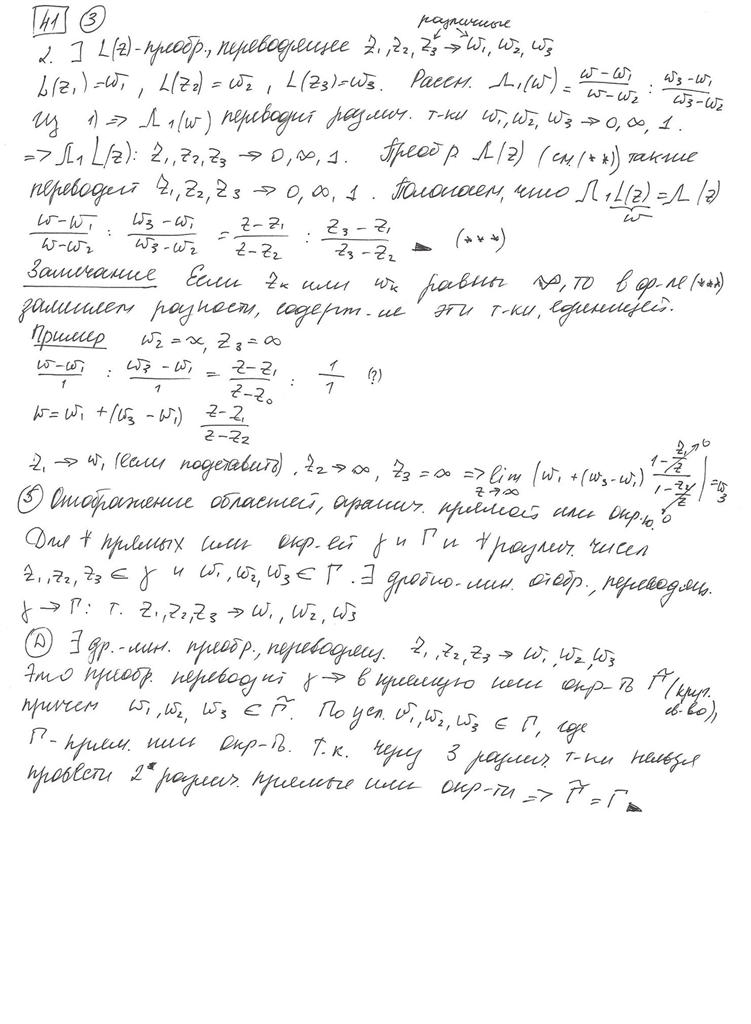 41 ③
различные
2. ∃ L(z)-преобр., переводящее z₁, z₂, z₃ → w₁, w₂, w₃
L(z₁) = w₁, L(z₂) = w₂, L(z₃) = w₃. Рассм. Λ₁(w) = (w-w₁)/(w-w₂) : (w₃-w₁)/(w₃-w₂)
Из 1) => Λ₁(w) переводит различ. т-ки w₁, w₂, w₃ → 0, ∞, 1.
=> Λ₁L(z): z₁, z₂, z₃ → 0, ∞, 1. Преобр Λ(z) (см. (**)) также
переводит z₁, z₂, z₃ → 0, ∞, 1. Полагаем, что Λ₁L(z) = Λ(z)
w
(w-w₁)/(w-w₂) : (w₃-w₁)/(w₃-w₂) = (z-z₁)/(z-z₂) : (z₃-z₁)/(z₃-z₂) (***)
Замечание Если zₖ или wₖ равны ∞, то в ф-ле (***)
заменяем разности, содерж-ие эти т-ки, единицей.
Пример w₂ = ∞, z₃ = ∞
(w-w₁)/1 : (w₃-w₁)/1 = (z-z₁)/(z-z₀) : 1/1 (?)
w = w₁ + (w₃-w₁) (z-z₁)/(z-z₂)
z₁ → w₁ (если подставить). z₂ → ∞, z₃ = ∞ => lim z→∞ (w₁ + (w₃-w₁) (1-z₁/z)/(1-z₂/z)) = w₃
⑤ Отображение областей, огранич. прямой или окр.ю.
Для ∀ прямых или окр-ей γ и Γ и ∀ различ. чисел
z₁, z₂, z₃ ∈ γ и w₁, w₂, w₃ ∈ Γ. ∃ дробно-лин. отобр., переводящ.
γ → Γ: т. z₁, z₂, z₃ → w₁, w₂, w₃
Ⓓ ∃ др.-лин. преобр., переводящ. z₁, z₂, z₃ → w₁, w₂, w₃
Это преобр. переводит γ → в прямую или окр-ть Γ̃ (круг. св-во),
причем w₁, w₂, w₃ ∈ Γ̃. По усл. w₁, w₂, w₃ ∈ Γ, где
Γ - прям. или окр-ть. Т.к. через 3 различ т-ки нельзя
провести 2 различ. прямые или окр-ти => Γ̃ = Γ